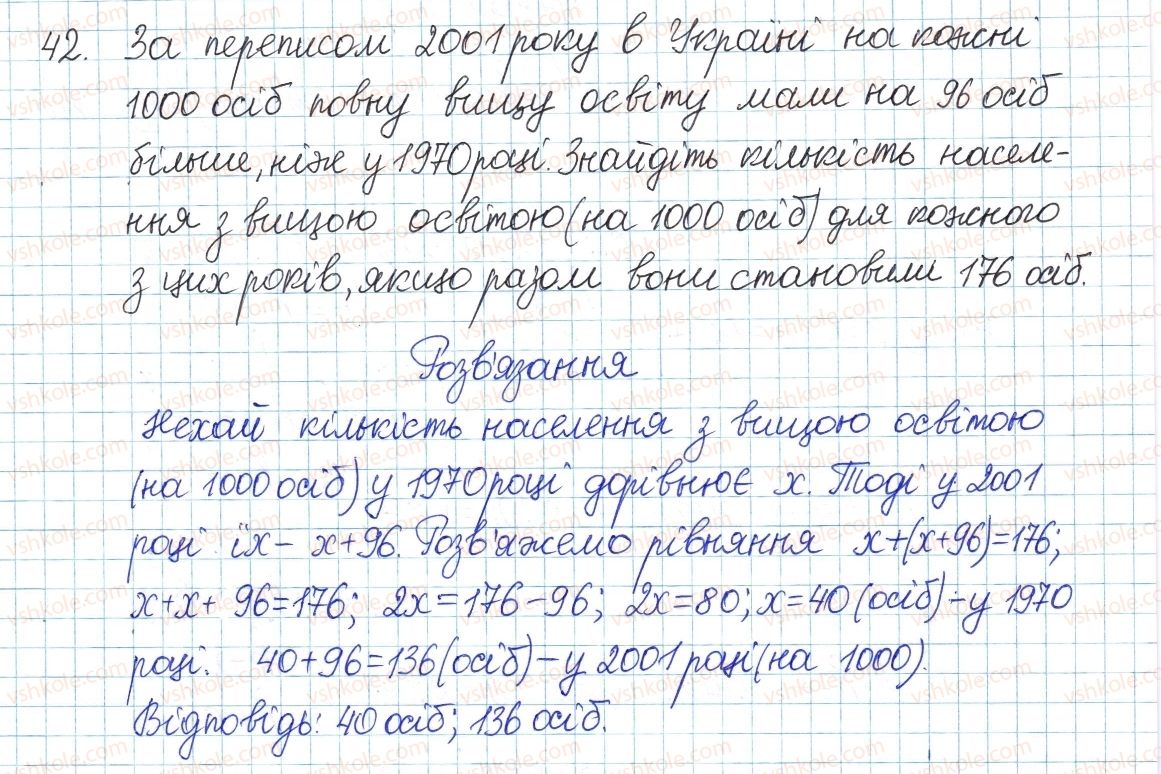 42. За переписом 2001 року в Україні на кожні
1000 осіб повну вищу освіту мали на 96 осіб
більше, ніж у 1970 році. Знайдіть кількість населе-
ння з вищою освітою (на 1000 осіб) для кожного
з цих років, якщо разом вони становили 176 осіб.
Розв'язання
Нехай кількість населення з вищою освітою
(на 1000 осіб) у 1970 році дорівнює x. Тоді у 2001
році їх - x+96. Розв'яжемо рівняння x+(x+96)=176;
x+x+96=176; 2x=176-96; 2x=80; x=40 (осіб) - у 1970
році. 40+96=136 (осіб) - у 2001 році (на 1000).
Відповідь: 40 осіб; 136 осіб.